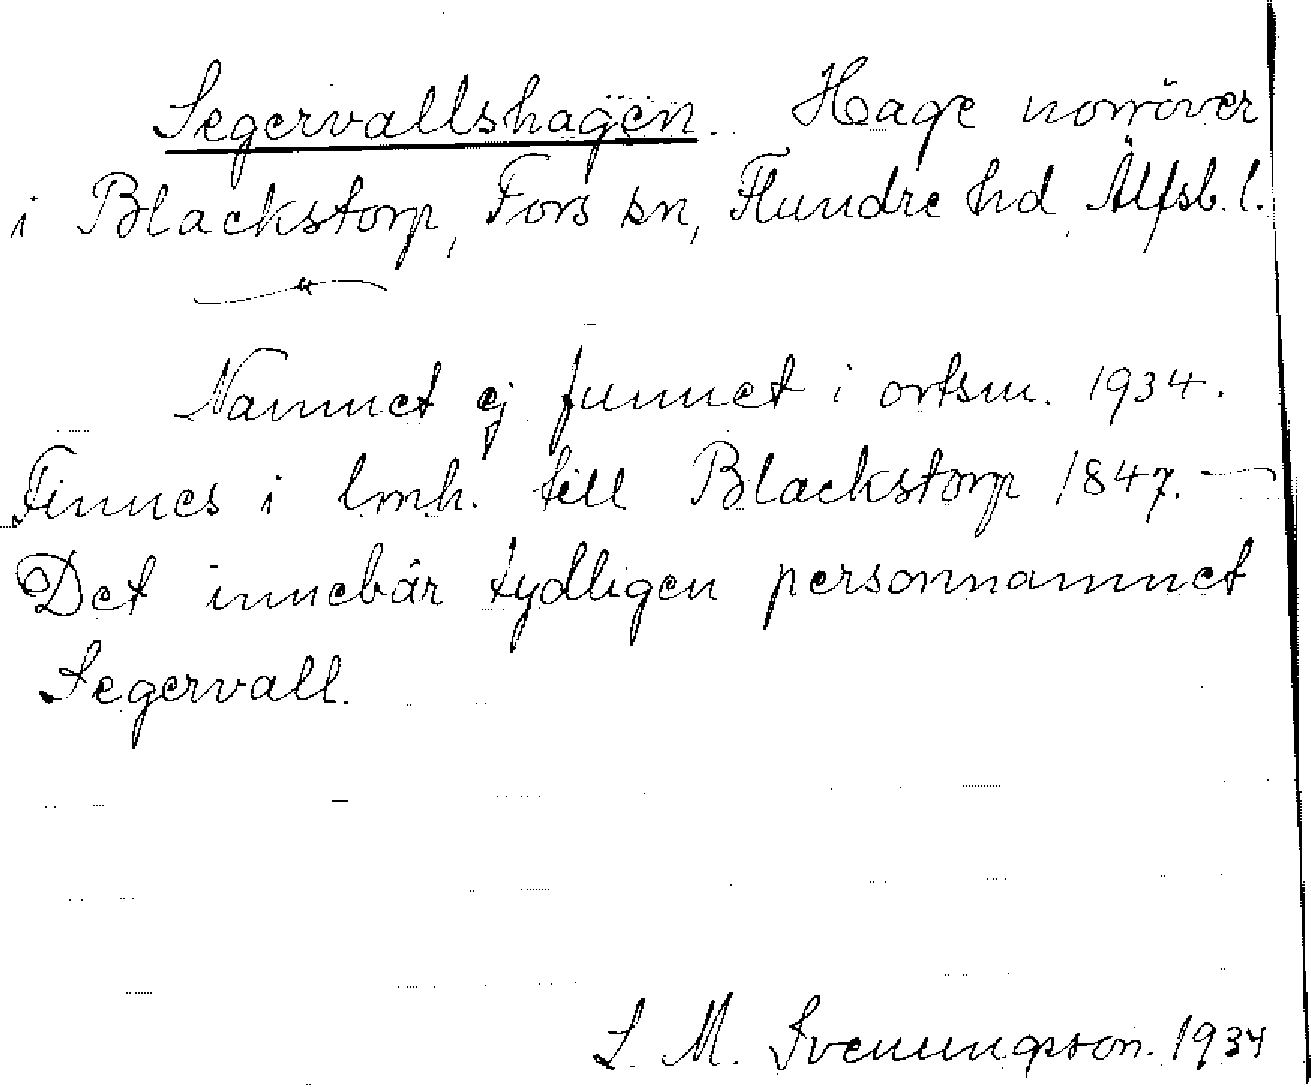 Segervallshagen. Hage norröver
i Blackstorp, Fors sn, Flundre hd, Älfsb. l.
Namnet ej funnet i ortsn. 1934.
Finnes i lmh. till Blackstorp 1847. —
Det innebär tydligen personnamnet
Segervall.
S. M. Svenungsson. 1934